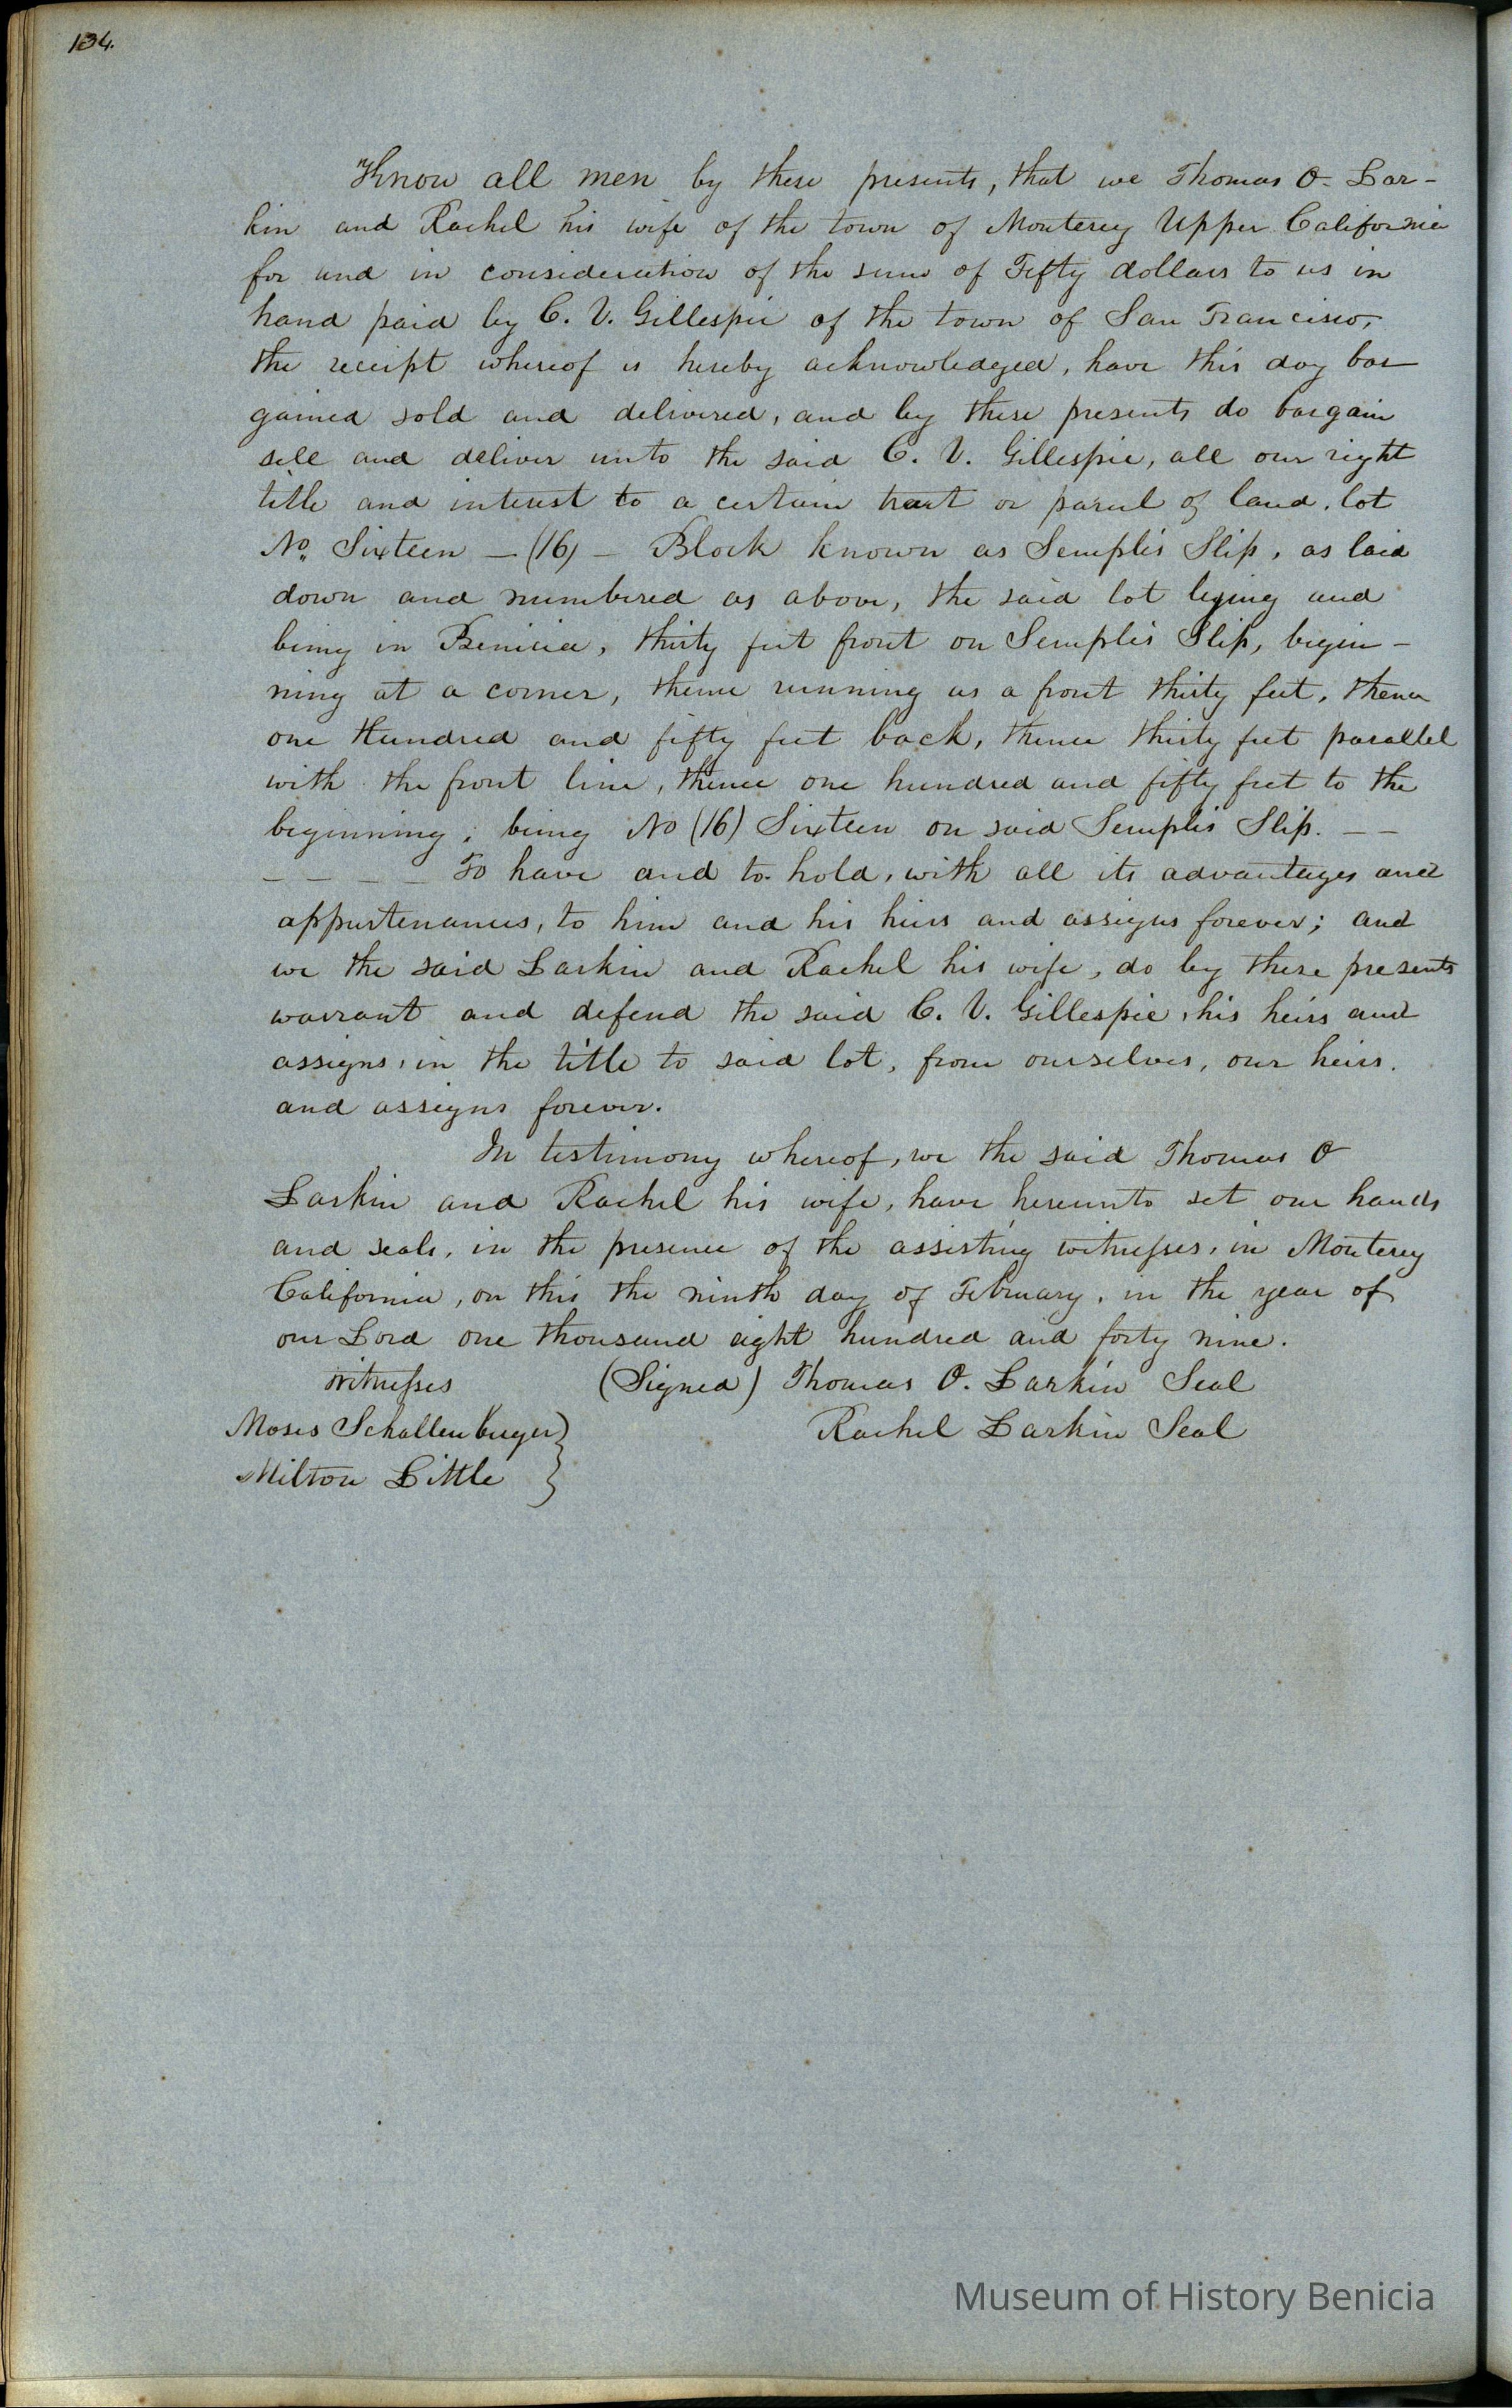 134.
Know all men by these presents, that we Thomas O. Lar-
kin and Rachel his wife of the town of Monterey Upper California
for and in consideration of the sum of Fifty dollars to us in
hand paid by C. V. Gillespie of the town of San Francisco,
the receipt whereof is hereby acknowledged, have this day bar-
gained sold and delivered, and by these presents do bargain
sell and deliver unto the said C. V. Gillespie, all our right
title and interest to a certain tract or parcel of land, lot
No. Sixteen - (16) - Block known as Semple's Slip, as laid
down and numbered as above, the said lot lying and
being in Benicia, thirty feet front on Semple's Slip, begin-
ning at a corner, thence running as a front thirty feet, thence
one Hundred and fifty feet back, thence thirty feet parallel
with the front line, thence one hundred and fifty feet to the
beginning; being No (16) Sixteen on said Semple's Slip. - -
- - - - To have and to hold, with all its advantages and
appurtenances, to him and his heirs and assigns forever; and
we the said Larkin and Rachel his wife, do by these presents
warrant and defend the said C. V. Gillespie, his heirs and
assigns, in the title to said lot, from ourselves, our heirs.
and assigns forever.
In testimony whereof, we the said Thomas O
Larkin and Rachel his wife, have hereunto set our hands
and seals, in the presence of the assisting witnesses, in Monterey
California, on this the ninth day of February, in the year of
our Lord one thousand eight hundred and forty nine.
Witnesses (Signed) Thomas O. Larkin Seal
Moses Schallenberger } Rachel Larkin Seal
Milton Little }
Museum of History Benicia